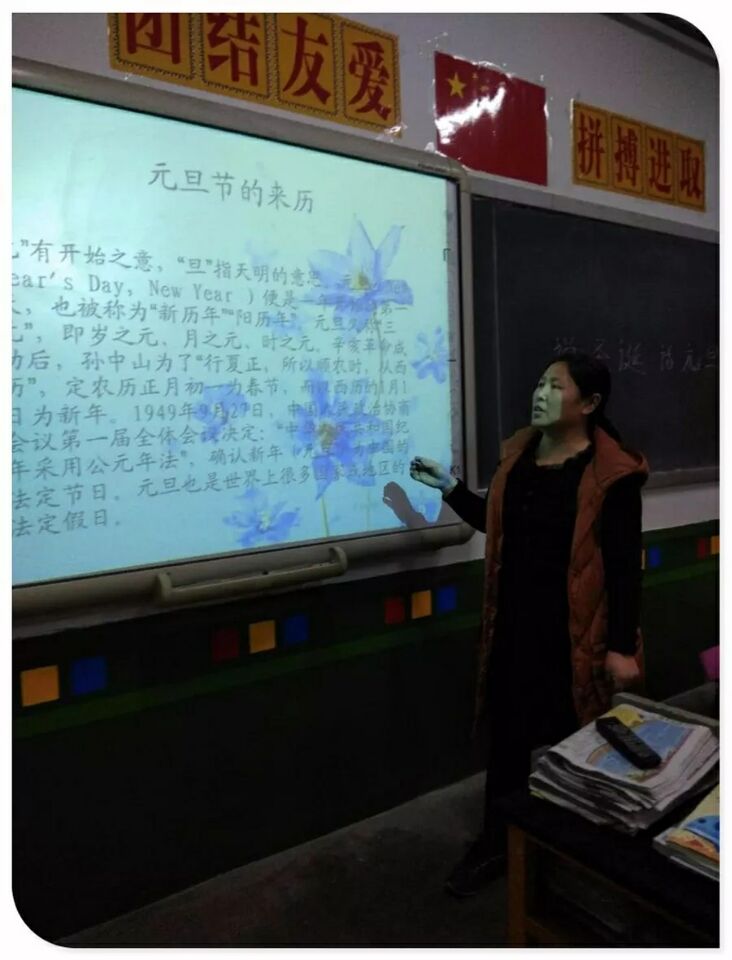 团结友爱
拼搏进取
元旦节的来历
”有开始之意，“旦”指天明的意思。元旦（New
ear's Day, New Year ）便是一年开始的第一
，也被称为“新历年”“阳历年”。元旦又称“三
”，即岁之元、月之元、时之元。辛亥革命成
功后，孙中山为了“行夏正，所以顺农时，从西
历”，定农历正月初一为春节，而以西历的1月1
日为新年。1949年9月27日，中国人民政治协商
会议第一届全体会议决定：“中华人民共和国纪
年采用公元年法”，确认新年（元旦）为中国的
法定节日。元旦也是世界上很多国家或地区的
法定假日。
元旦